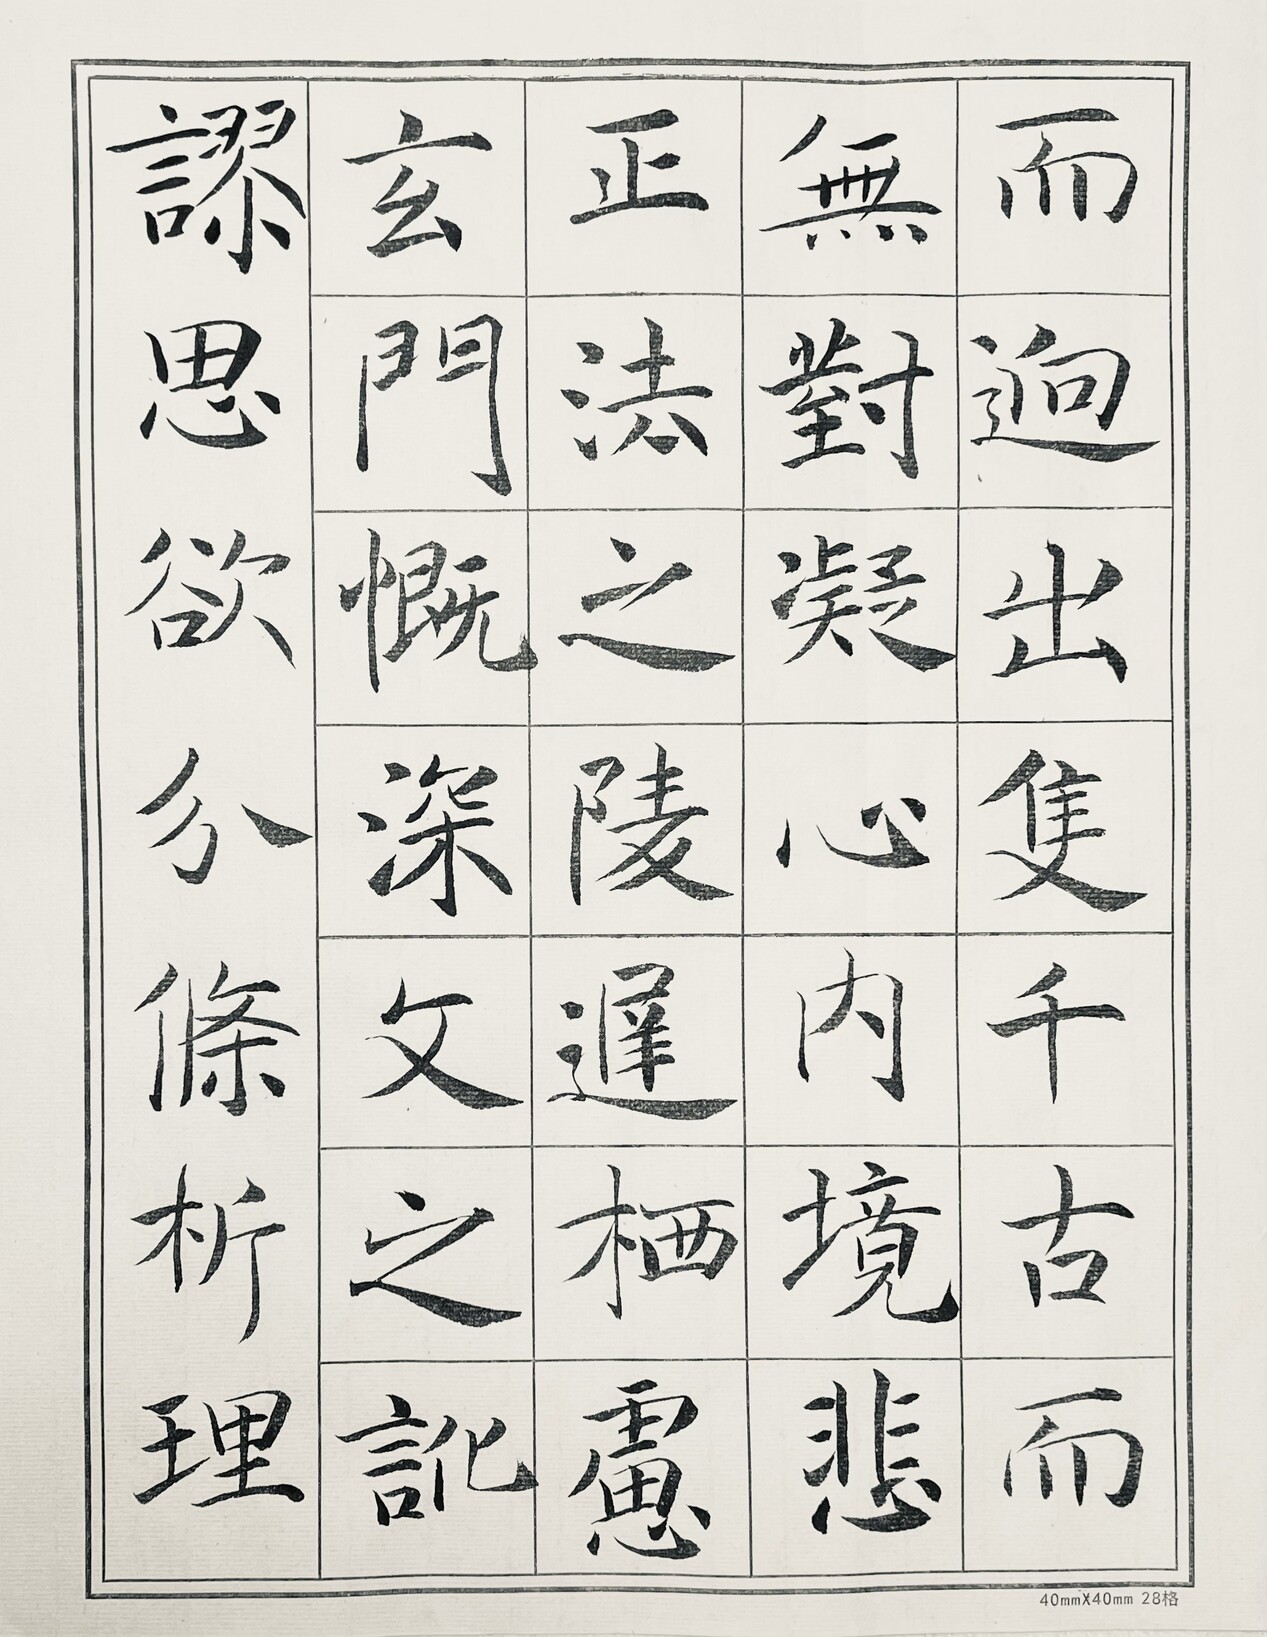 而迥出隻千古而
無對凝心内境悲
正法之陵遲栖慮
玄門慨深文之訛
謬思欲分條析理
40mmX40mm 28格